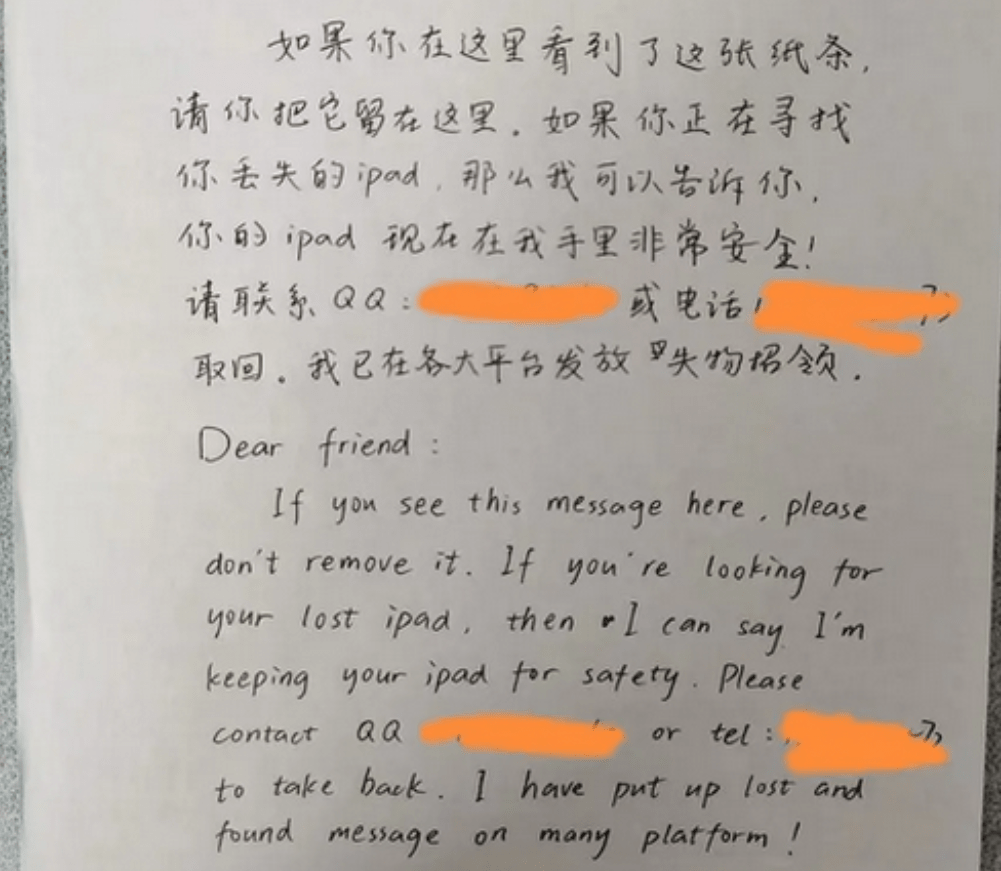 如果你在这里看到了这张纸条,
请你把它留在这里. 如果你正在寻找
你丢失的ipad, 那么我可以告诉你,
你的ipad 现在在我手里非常安全!
请联系QQ: 或电话:
取回. 我已在各大平台发放 失物招领.
Dear friend:
If you see this message here, please
don't remove it. If you're looking for
your lost ipad, then I can say I'm
keeping your ipad for safety. Please
contact QQ or tel:
to take back. I have put up lost and
found message on many platform!